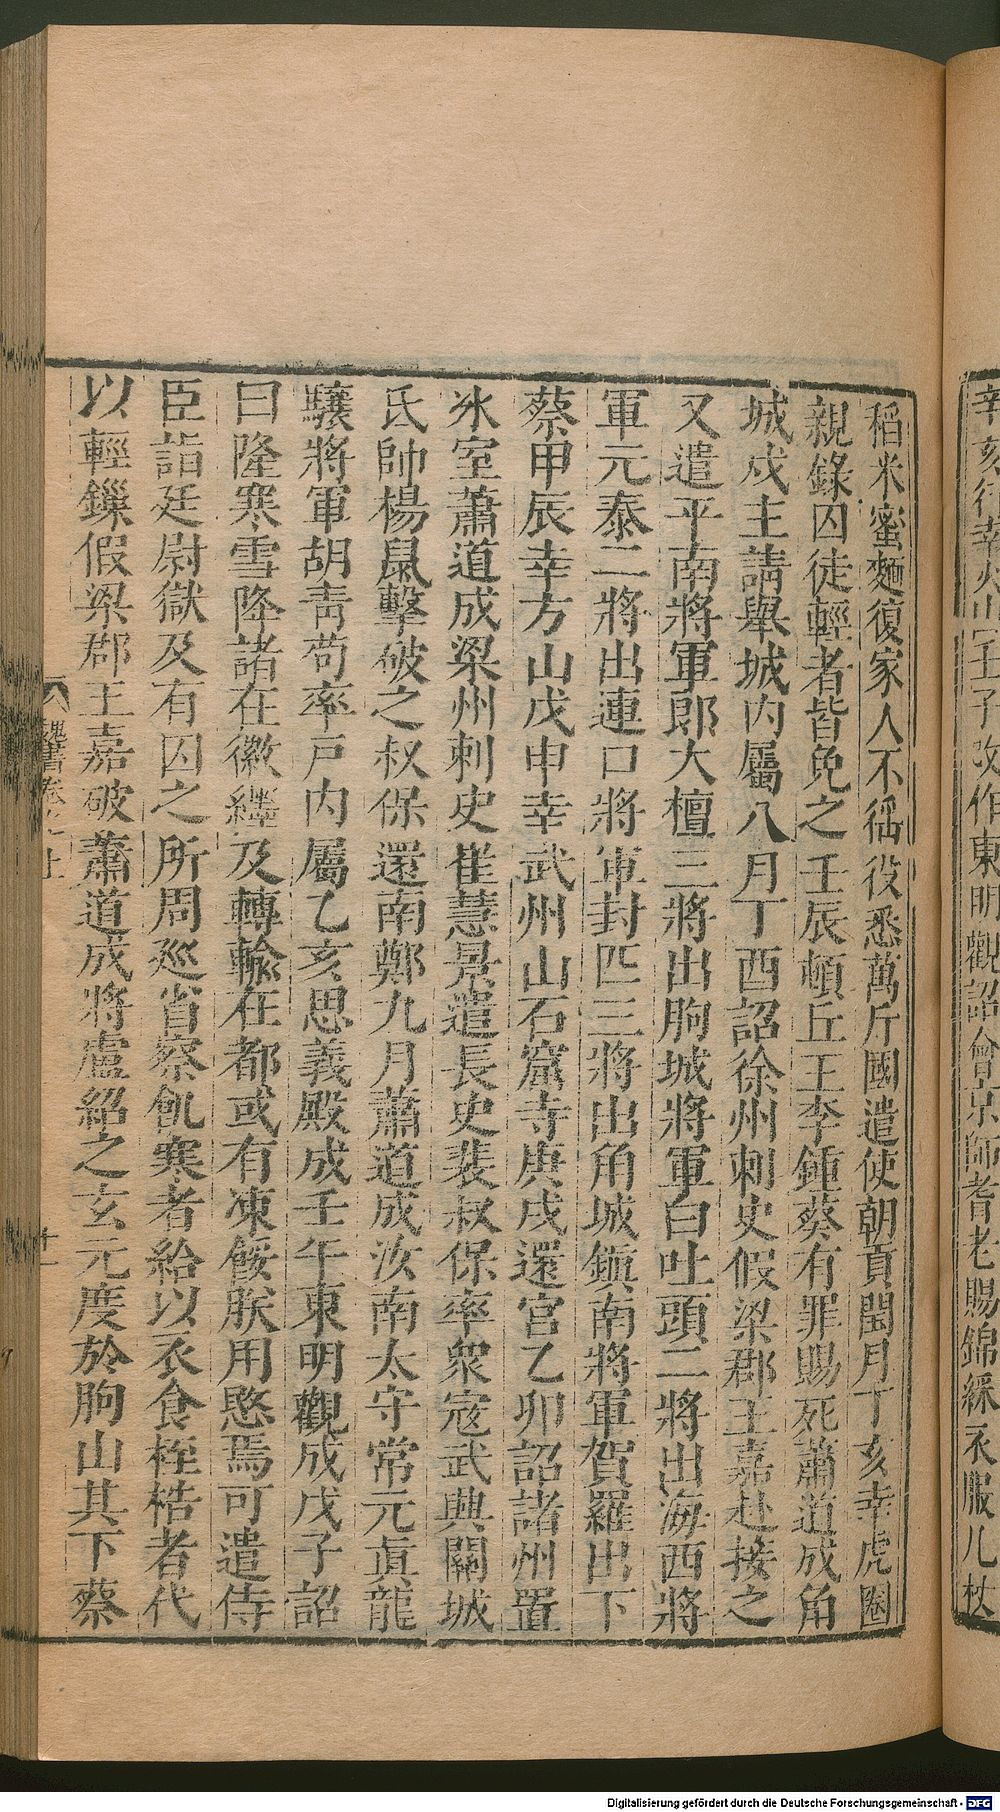 辛亥行幸火山壬子改作東明觀詔會京師耆老賜錦綵衣服几杖
稻米蜜麵復家人不徭役悉萬斤國遣使朝貢閏月丁亥幸虎圈
親錄囚徒輕者皆免之壬辰頓丘王李鍾葵有罪賜死蕭道成角
城戍主請舉城內屬八月丁酉詔徐州刺史假梁郡王嘉赴接之
又遣平南將軍郎大檀三將出朐城將軍白吐頭二將出海西將
軍元泰二將出連口將軍封匹三將出角城鎮南將軍賀羅出下
蔡甲辰幸方山戊申幸武州山石窟寺庚戌還宮乙卯詔諸州置
冰室蕭道成梁州刺史崔慧景遣長史裴叔保率衆寇武興關城
氐帥楊鼠擊破之叔保還南鄭九月蕭道成汝南太守常元真龍
驤將軍胡青苟率戶內屬乙亥思義殿成壬午東明觀成戊子詔
曰隆寒雪降諸在徽纆及轉輸在都或有凍餒朕用愍焉可遣侍
臣詣廷尉獄及有囚之所周巡省察飢寒者給以衣食桎梏者代
以輕鏁假梁郡王嘉破蕭道成將盧紹之玄元度於朐山其下蔡
魏書卷七上
十一
Digitalisierung gefördert durch die Deutsche Forschungsgemeinschaft - DFG